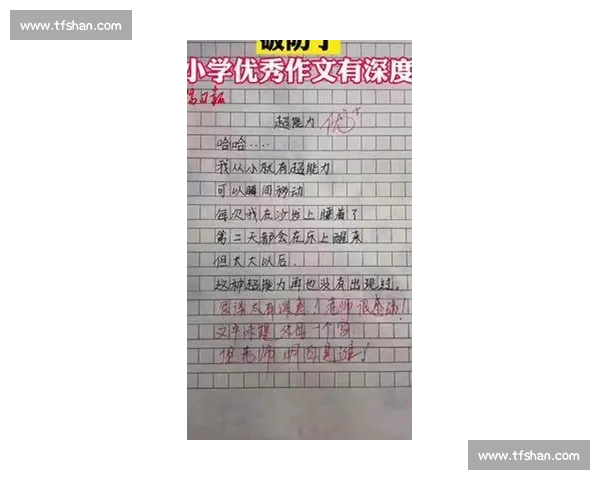 www.tfshan.com
破防了
小学优秀作文有深度
超能力 优+
哈哈……
我从小就有超能力
可以瞬间移动
每次我在沙发上睡着了
第二天都会在床上醒来
但大大以后.
这种超能力再也没有出现过。
太有深意！老师很感动！
一个字
但老师明白是谁！
www.tfshan.com